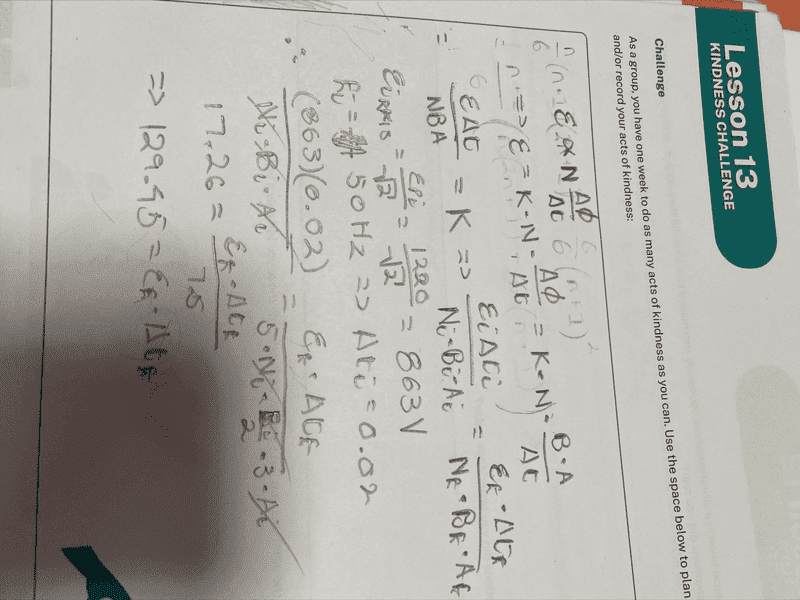 Lesson 13
KINDNESS CHALLENGE
Challenge
As a group, you have one week to do as many acts of kindness as you can. Use the space below to plan
and/or record your acts of kindness:
ε ∝ N ΔΦ/Δt
=> ε = K·N·ΔΦ/Δt = K·N·B·A/Δt
εΔt/NBA = K => εiΔti/Ni·Bi·Ai = εF·ΔtF/NF·BF·AF
εiRMS = εPi/√2 = 1220/√2 = 863V
fi = 50Hz => Δti = 0.02
∴ (863)(0.02)/Ni·Bi·Ai = εF·ΔtF/5·Ni·Bi/2·3·Ai
17.26 = εF·ΔtF/7.5
=> 129.45 = εF·ΔtF